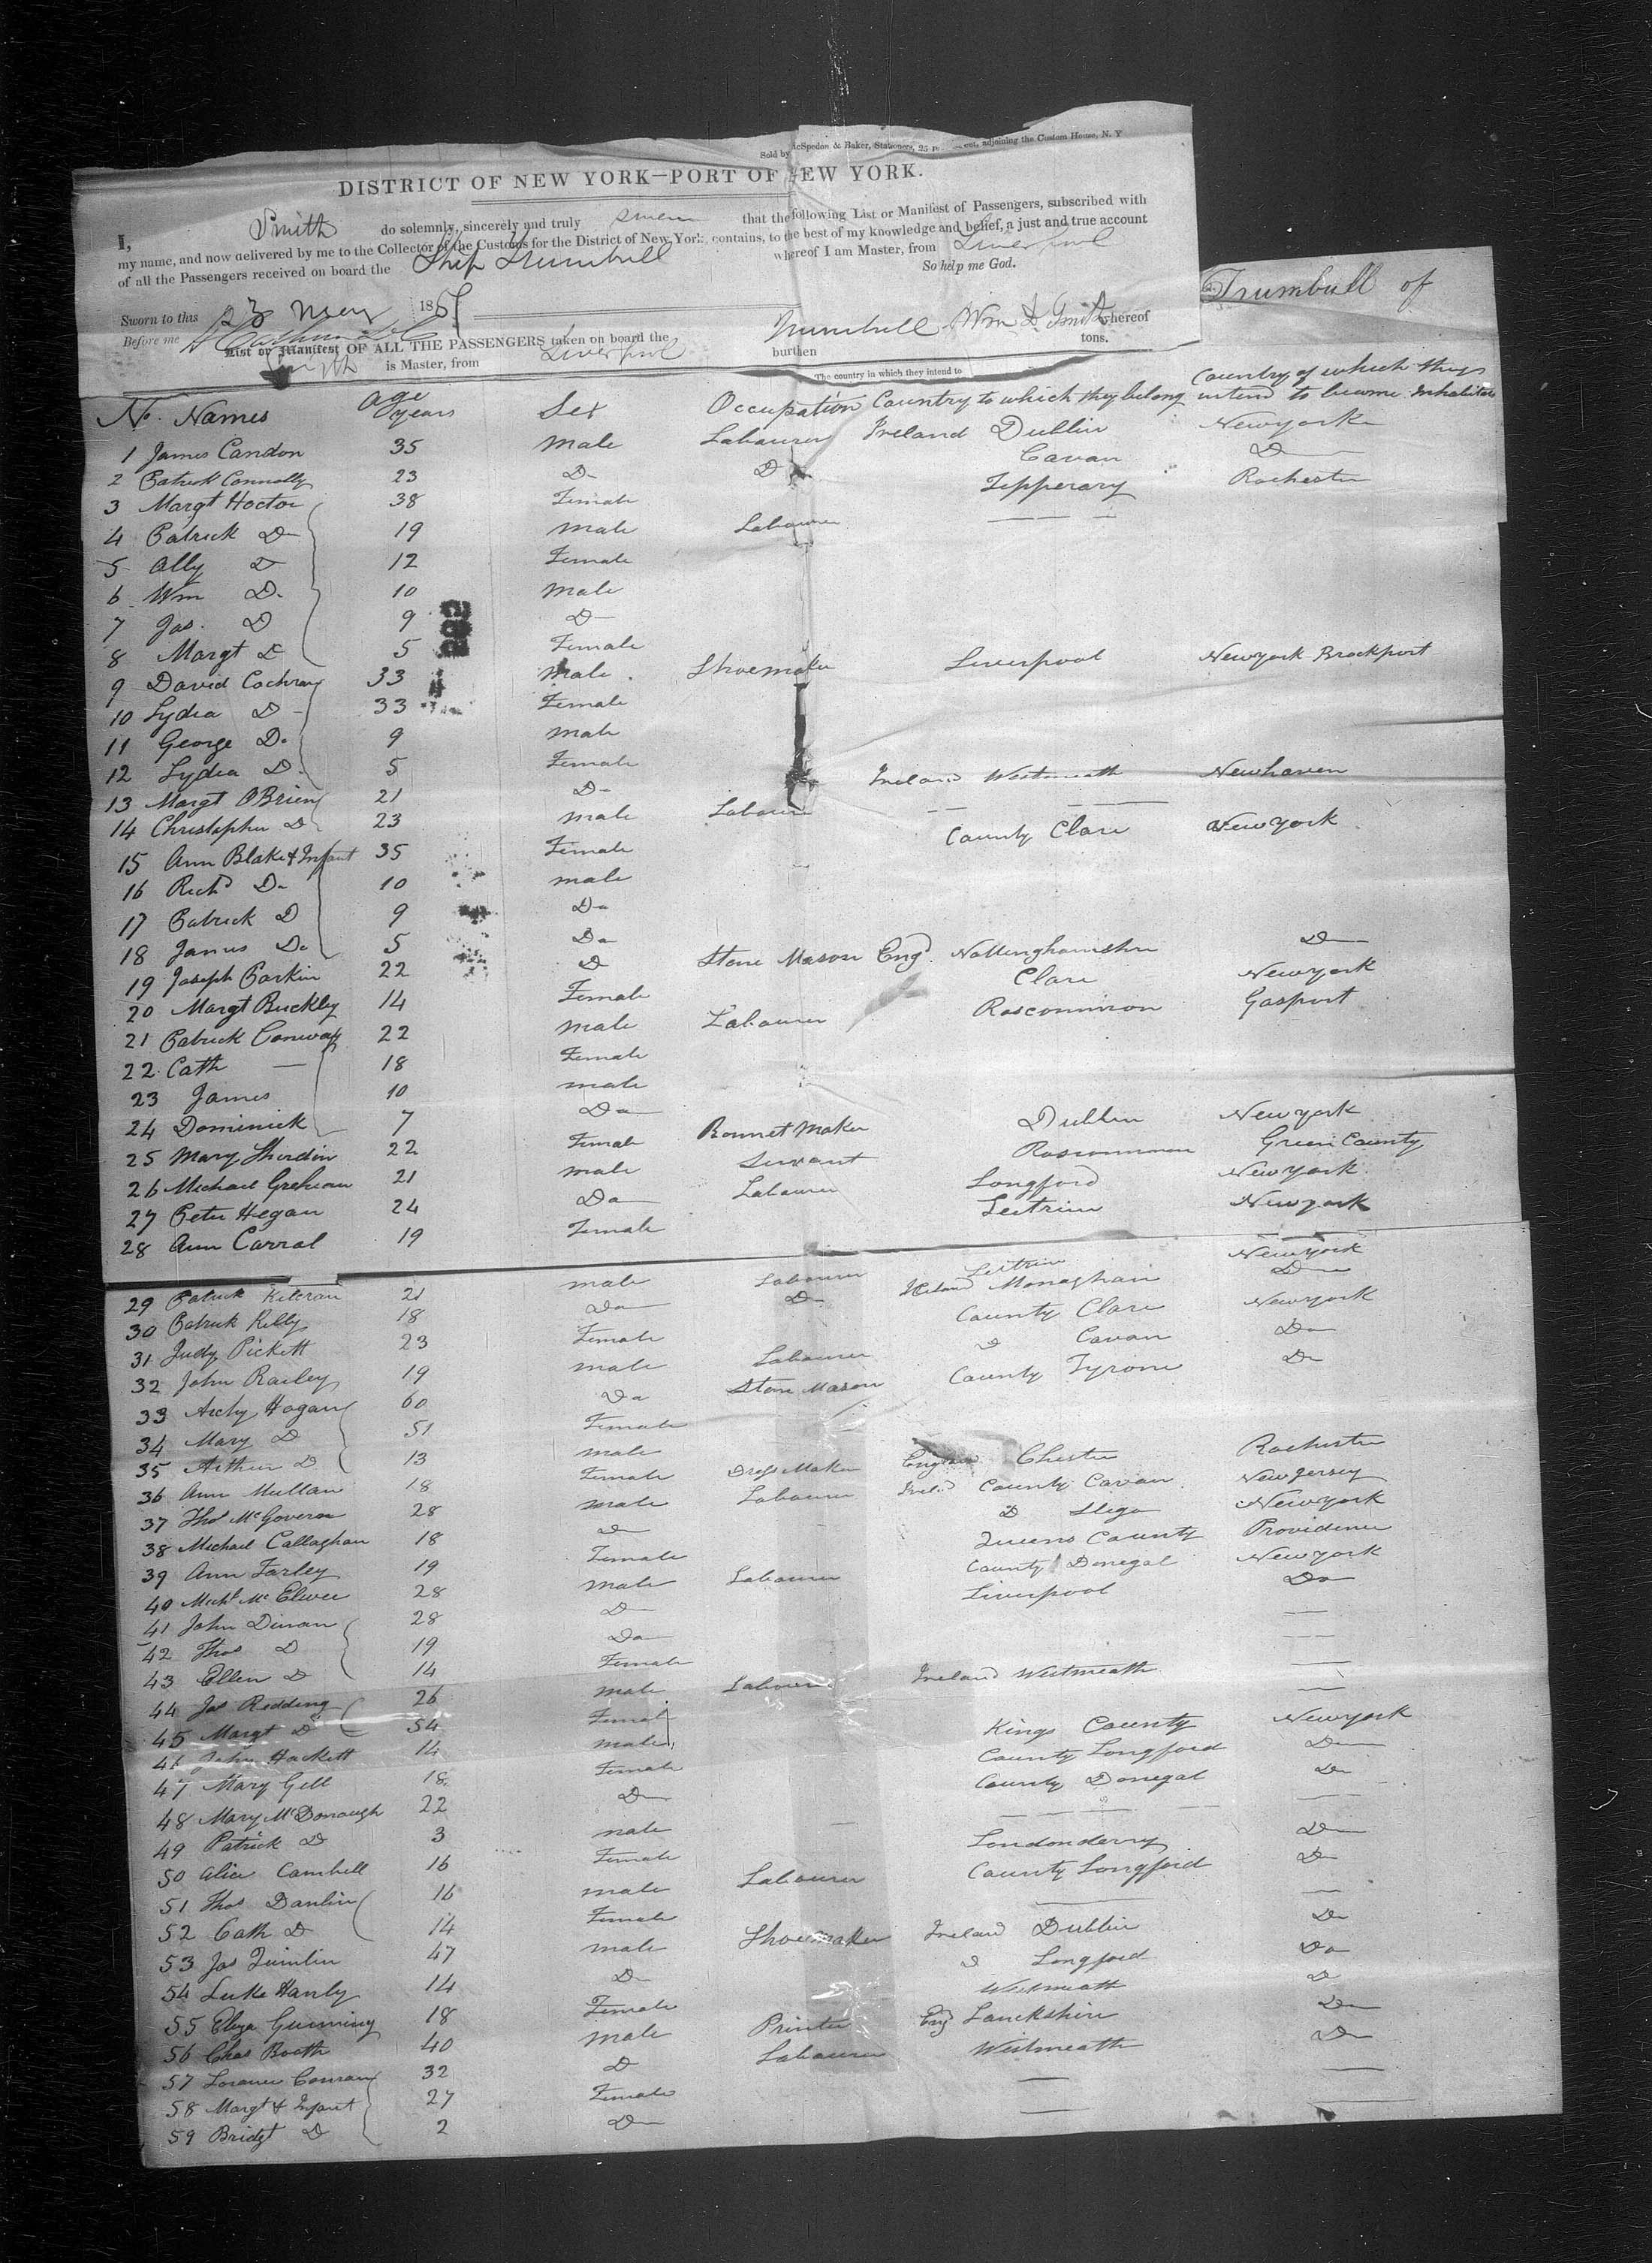 Sold by McSpedon & Baker, Stationers, 25 adjoining the Custom House, N. Y
DISTRICT OF NEW YORK—PORT OF NEW YORK.
I, Smith do solemnly, sincerely and truly swear that the following List or Manifest of Passengers, subscribed with
my name, and now delivered by me to the Collector of the Customs for the District of New York, contains, to the best of my knowledge and belief, a just and true account
of all the Passengers received on board the Ship Trumbull whereof I am Master, from Liverpool
So help me God.
Sworn to this 23 May 185
Before me
Trumbull of
List or Manifest OF ALL THE PASSENGERS taken on board the Trumbull Wm Smith whereof
Smith is Master, from Liverpool burthen tons.
The country in which they intend to
No. Names age years Sex Occupation Country to which they belong Country of which they intend to become Inhabitants
1 James Candon 35 Male Labourer Ireland Dublin Newyork
2 Patrick Connolly 23 D- D Cavan D
3 Margt Hoctor 38 Female Tipperary Rochester
4 Patrick D- 19 Male Labourer — — —
5 Ally D 12 Female
6 Wm D. 10 Male
7 Jas. D 9 D-
8 Margt D 5 Female
9 David Cochran 33 Male Shoemaker Liverpool Newyork Brockport
10 Lydia D- 33 Female
11 George D. 9 male
12 Lydia D. 5 Female
13 Margt OBrien 21 D- Ireland Westmeath Newhaven
14 Christopher D 23 male Labourer — —
15 Ann Blake & Infant 35 Female County Clare Newyork
16 Richd D- 10 male
17 Patrick D 9 Do
18 James Do 5 Do
19 Joseph Parkin 22 D Stone Mason Eng. Nottinghamshire D
20 Margt Buckley 14 Female Clare Newyork
21 Patrick Conway 22 male Labourer Roscommon Gasport
22 Cath — 18 Female
23 James 10 male
24 Dominick 7 Do
25 Mary Sherdin 22 Female Bonnet Maker Dublin Newyork
26 Michael Grehean 21 male Servant Roscommon Green County
27 Peter Hegan 24 Do Labourer Longford Newyork
28 Ann Carral 19 Female Leitrim Newyork
29 Patrick Kilcran 21 male Labourer Leitrim Newyork
30 Patrick Relly 18 Do D Ireland Monaghan D
31 Judy Pickett 23 Female County Clare Newyork
32 John Railey 19 male Labourer D Cavan Do
33 Archy Hogan 60 Do Stone Mason County Tyrone Do
34 Mary D 51 Female
35 Arthur D 13 male
36 Ann Mullan 18 Female Dress Maker England Chester Rochester
37 Thos McGovern 28 male Labourer Ireld County Cavan New Jersey
38 Michael Callaghan 18 D D Sligo Newyork
39 Ann Farley 19 Female Queens County Providence
40 Michl McElwee 28 male Labourer County Donegal Newyork
41 John Dinan 28 D Liverpool Do
42 Thos D 19 Do —
43 Ellen D 14 Female —
44 Jas Redding 26 male Labourer Ireland Westmeath —
45 Margt D 54 Female —
46 John Hackett 14 male Kings County Newyork
47 Mary Gill 18 Female County Longford Do
48 Mary McDonough 22 D County Donegal Do
49 Patrick D 3 male — — — —
50 Alice Cambell 16 Female Londonderry Do
51 Thos Danlin 16 male Labourer County Longford Do
52 Cath D 14 Female — —
53 Jas Tumlin 47 male Shoemaker Ireland Dublin Do
54 Luke Hanly 14 D D Longford Do
55 Eliza Gunning 18 Female Westmeath D
56 Chas Booth 40 male Printer Eng Lanckshire Do
57 Conran 32 D Labourer Westmeath Do
58 Margt & Infant 27 Female — —
59 Bridgt D 2 D — —